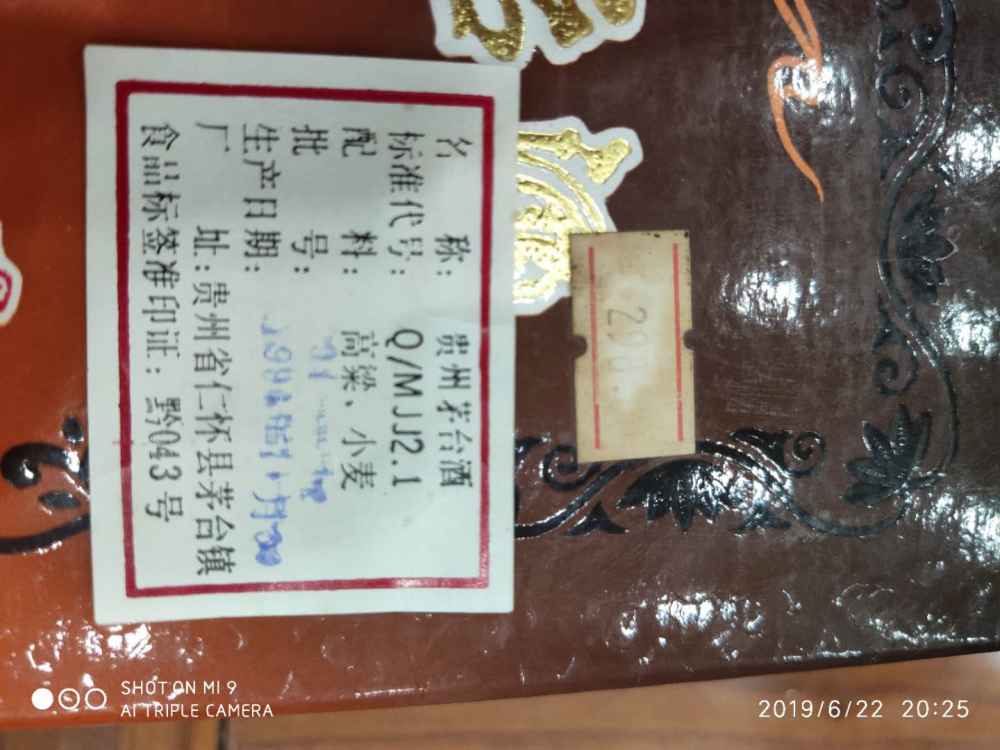 名 称: 贵州茅台酒
标准代号: Q/MJJ2.1
配 料: 高粱、小麦
批 号:
生产日期:
厂 址: 贵州省仁怀县茅台镇
食品标签准印证: 黔043号
298.
SHOT ON MI 9
AI TRIPLE CAMERA
2019/6/22 20:25